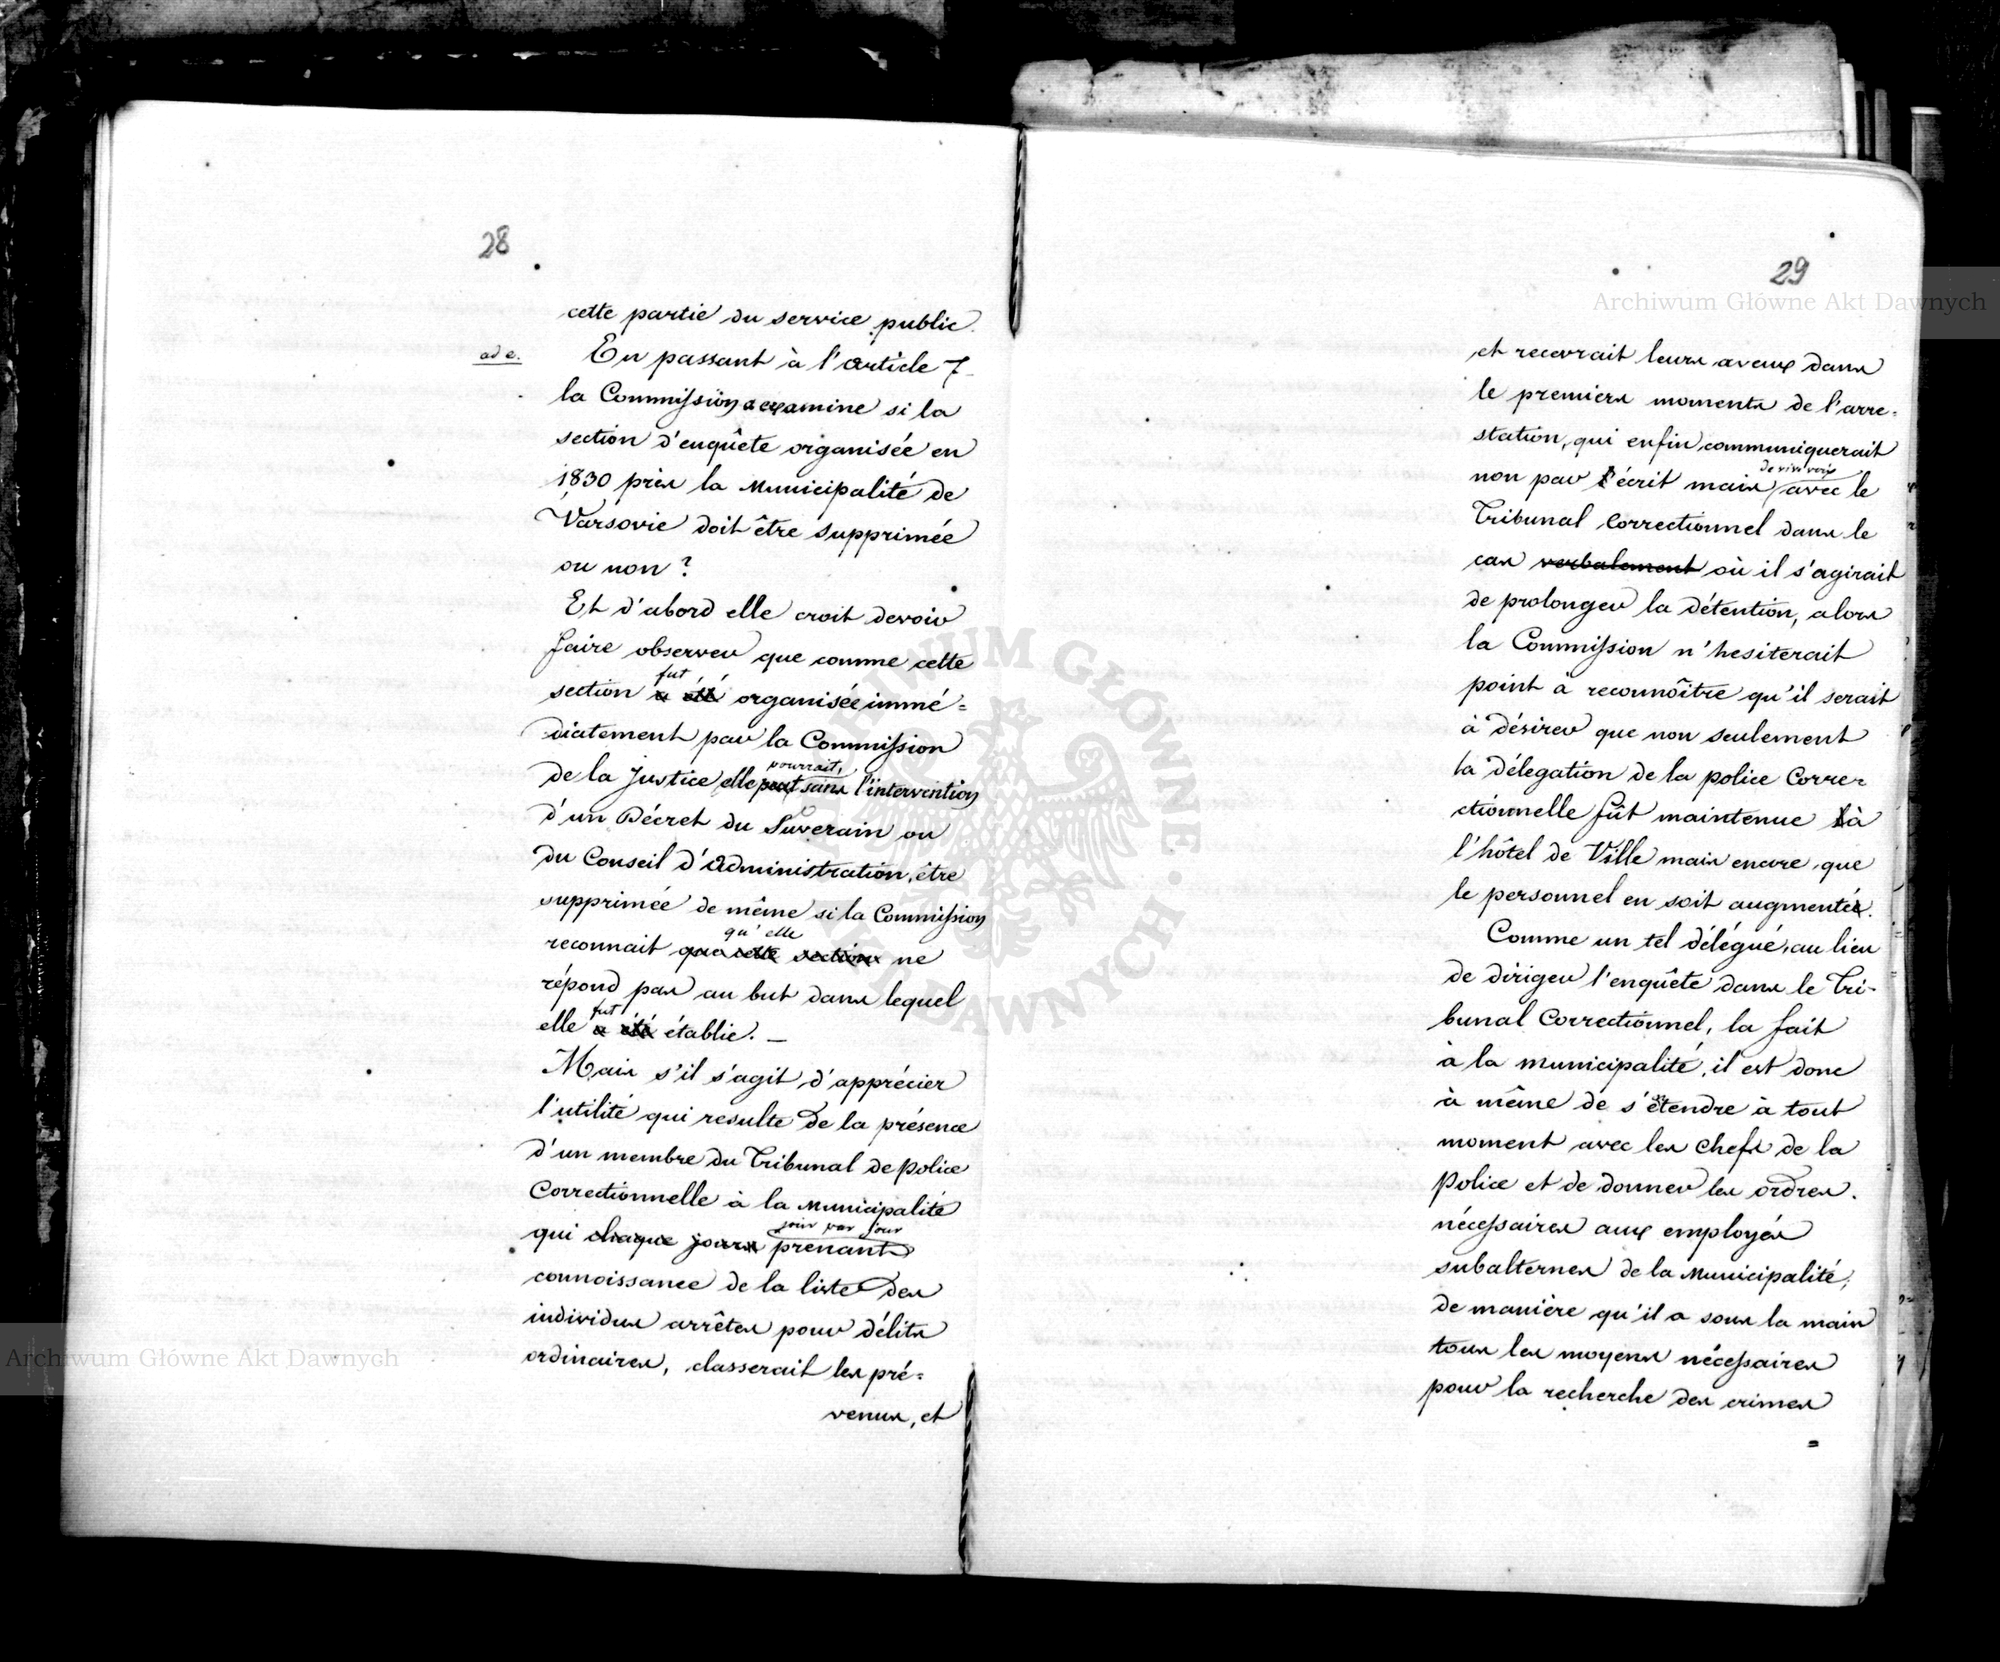 28
cette partie du service public.
ad e.
En passant à l'article 7
la Commission a examine si la
section d'enquête organisée en
1830 près la Municipalité de
Varsovie doit être supprimée
ou non ?
Et d'abord elle croit devoir
faire observer que comme cette
fut
section a été organisée immé=
diatement par la Commission
pourrait,
de la Justice elle peut sans l'intervention
d'un Décret du Suverain ou
du Conseil d'Administration, être
supprimée de même si la Commission
qu'elle
reconnait que cette section ne
répond pas au but dans lequel
fut
elle a été établie. —
Mais s'il s'agit d'apprécier
l'utilité qui resulte de la présence
d'un membre du Tribunal de police
Correctionnelle à la Municipalité
jour par jour
qui chaque jours prenant
connoissance de la liste des
individus arrêtes pour délits
ordinaires, classerait les pré=
venus, et
29
et recevrait leurs aveux dans
le premiers moments de l'arre=
station, qui enfin communiquerait
de vive voix
non par écrit mais avec le
Tribunal Correctionnel dans le
cas verbalement où il s'agirait
de prolonger la détention, alors
la Commission n'hesiterait
point à reconnôitre qu'il serait
à désirer que non seulement
la délegation de la police Corre=
ctionnelle fût maintenue à
l'hôtel de Ville mais encore que
le personnel en soit augmenté.
Comme un tel délégué, au lieu
de diriger l'enquête dans le Tri-
bunal Correctionnel, la fait
à la Municipalité, il est donc
à même de s'entendre à tout
moment avec les Chefs de la
Police et de donner les ordres.
nécessaires aux employés
subalternes de la Municipalité,
de manière qu'il a sous la main
tous les moyens nécessaires
pour la recherche des crimes
=
Archiwum Główne Akt Dawnych
Archiwum Główne Akt Dawnych
ARCHIWUM GŁÓWNE AKT DAWNYCH